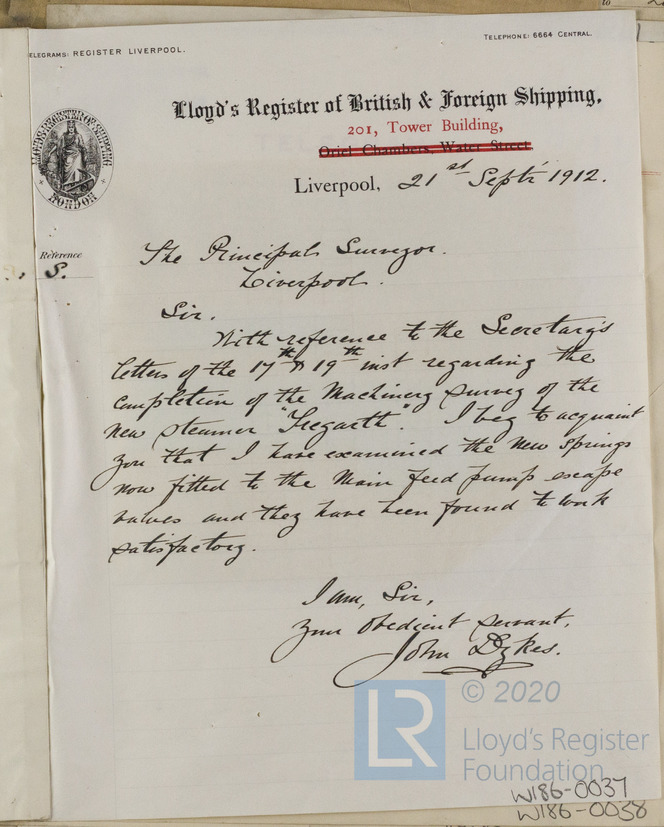 ELEGRAMS: REGISTER LIVERPOOL.
TELEPHONE: 6664 CENTRAL.
Lloyd's Register of British & Foreign Shipping,
201, Tower Building,
Oriel Chambers, Water Street
Liverpool, 21st Septr 1912.
LONDON
Reference
S.
The Principal Surveyor.
Liverpool.
Sir.
With reference to the Secretary's
letters of the 17th & 19th inst regarding the
completion of the Machinery survey of the
new steamer "Tregarth". I beg to acquaint
you that I have examined the new springs
now fitted to the Main feed pump escape
valves and they have been found to work
satisfactory.
I am, Sir,
your obedient servant,
John Dykes.
LR
© 2020
Lloyd's Register
Foundation
W186-0037
W186-0038